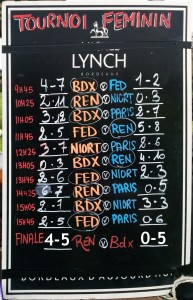 TOURNOI FEMININ
LYNCH
BORDEAUX
9H45 4-7 BDX V FED 1-2
10H25 2-11 REN V NIORT 0-3
11H05 3-12 BDX V PARIS 2-7
11H45 2-5 FED V REN 5-8
12H25 3-7 NIORT V PARIS
13H05 0-3 BDX V REN 4-10
13H45 2-6 FED V NIORT 2-3
14H25 6-7 REN V PARIS 0-5
15H05 2-7 BDX V NIORT 3-5
15H45 2-5 FED V PARIS 0-6
FINALE 4-5 REN V Bdx 0-5
BORDEAUX D'AUJOURD'HUI